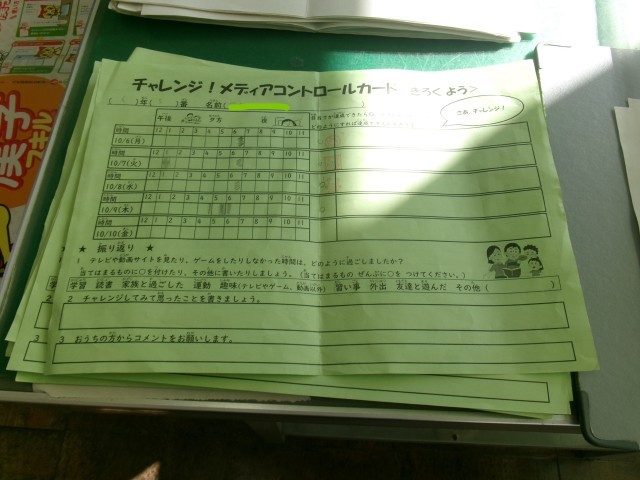 チャレンジ！メディアコントロールカード きろくよう＞
( )年( )番 名前(
さあ、チャレンジ！
午後 夕方 夜
時間 12 1 2 3 4 5 6 7 8 9 10 11
10/6(月)
時間 12 1 2 3 4 5 6 7 8 9 10 11
10/7(火)
時間 12 1 2 3 4 5 6 7 8 9 10 11
10/8(水)
時間 12 1 2 3 4 5 6 7 8 9 10 11
10/9(木)
時間 12 1 2 3 4 5 6 7 8 9 10 11
10/10(金)
★ 振り返り ★
1 テレビや動画サイトを見たり、ゲームをしたりしなかった時間は、どのように過ごしましたか？
当てはまるものに○を付けたり、その他に書いたりしましょう。(当てはまるもの ぜんぶに○を つけてください。)
学習 読書 家族と過ごした 運動 趣味(テレビやゲーム、動画以外) 習い事 外出 友達と遊んだ その他( )
2 チャレンジしてみて思ったことを書きましょう。
3 おうちの方からコメントをお願いします。
3